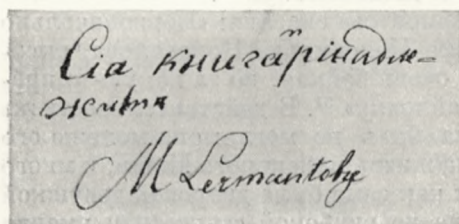 Сіа книга принадле-
житъ
M Lermantoff